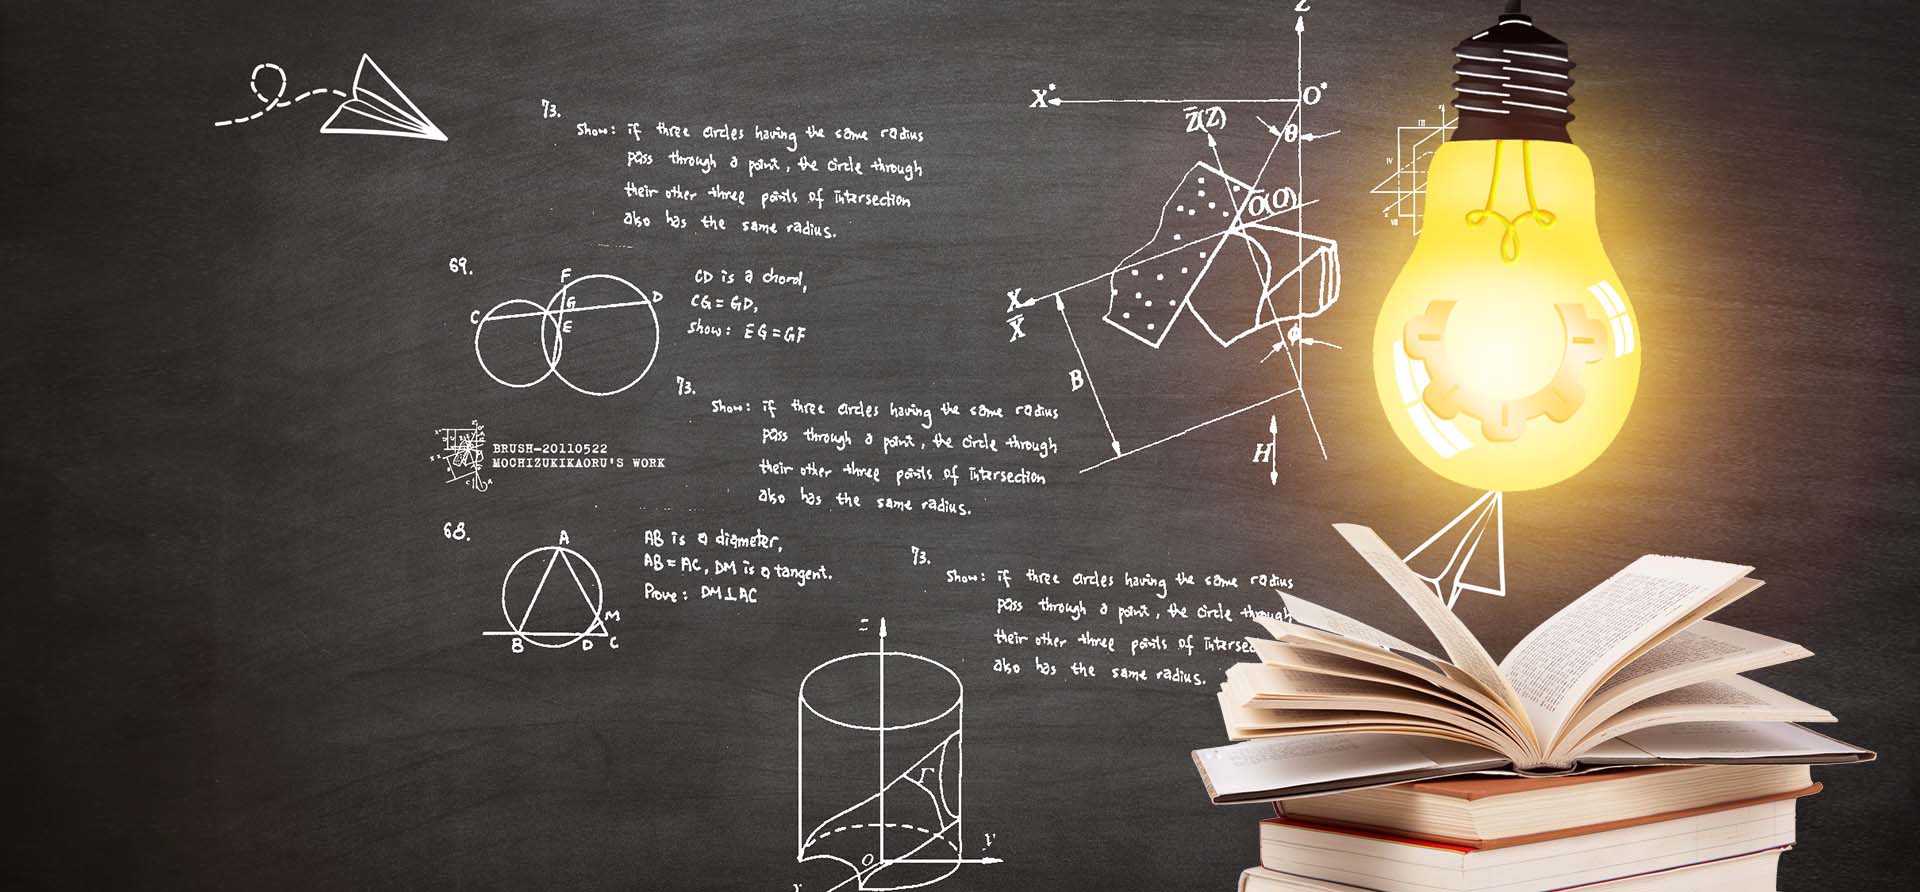 73.
Show: if three circles having the same radius
pass through a point, the circle through
their other three points of intersection
also has the same radius.
69.
F
G
D
C
E
CD is a chord,
CG = GD,
Show: EG = GF
73.
Show: if three circles having the same radius
pass through a point, the circle through
their other three points of intersection
also has the same radius.
BRUSH-20110522
MOCHIZUKIKAORU'S WORK
68.
A
M
B
D
C
AB is a diameter,
AB = AC, DM is a tangent.
Prove: DM⊥AC
73.
Show: if three circles having the same radius
pass through a point, the circle through
their other three points of intersec
also has the same radius.
Z
X*
O*
Z̅(Z)
θ
O̅(O)
X
X̅
φ
B
H
III
IV
VII
Γ
O